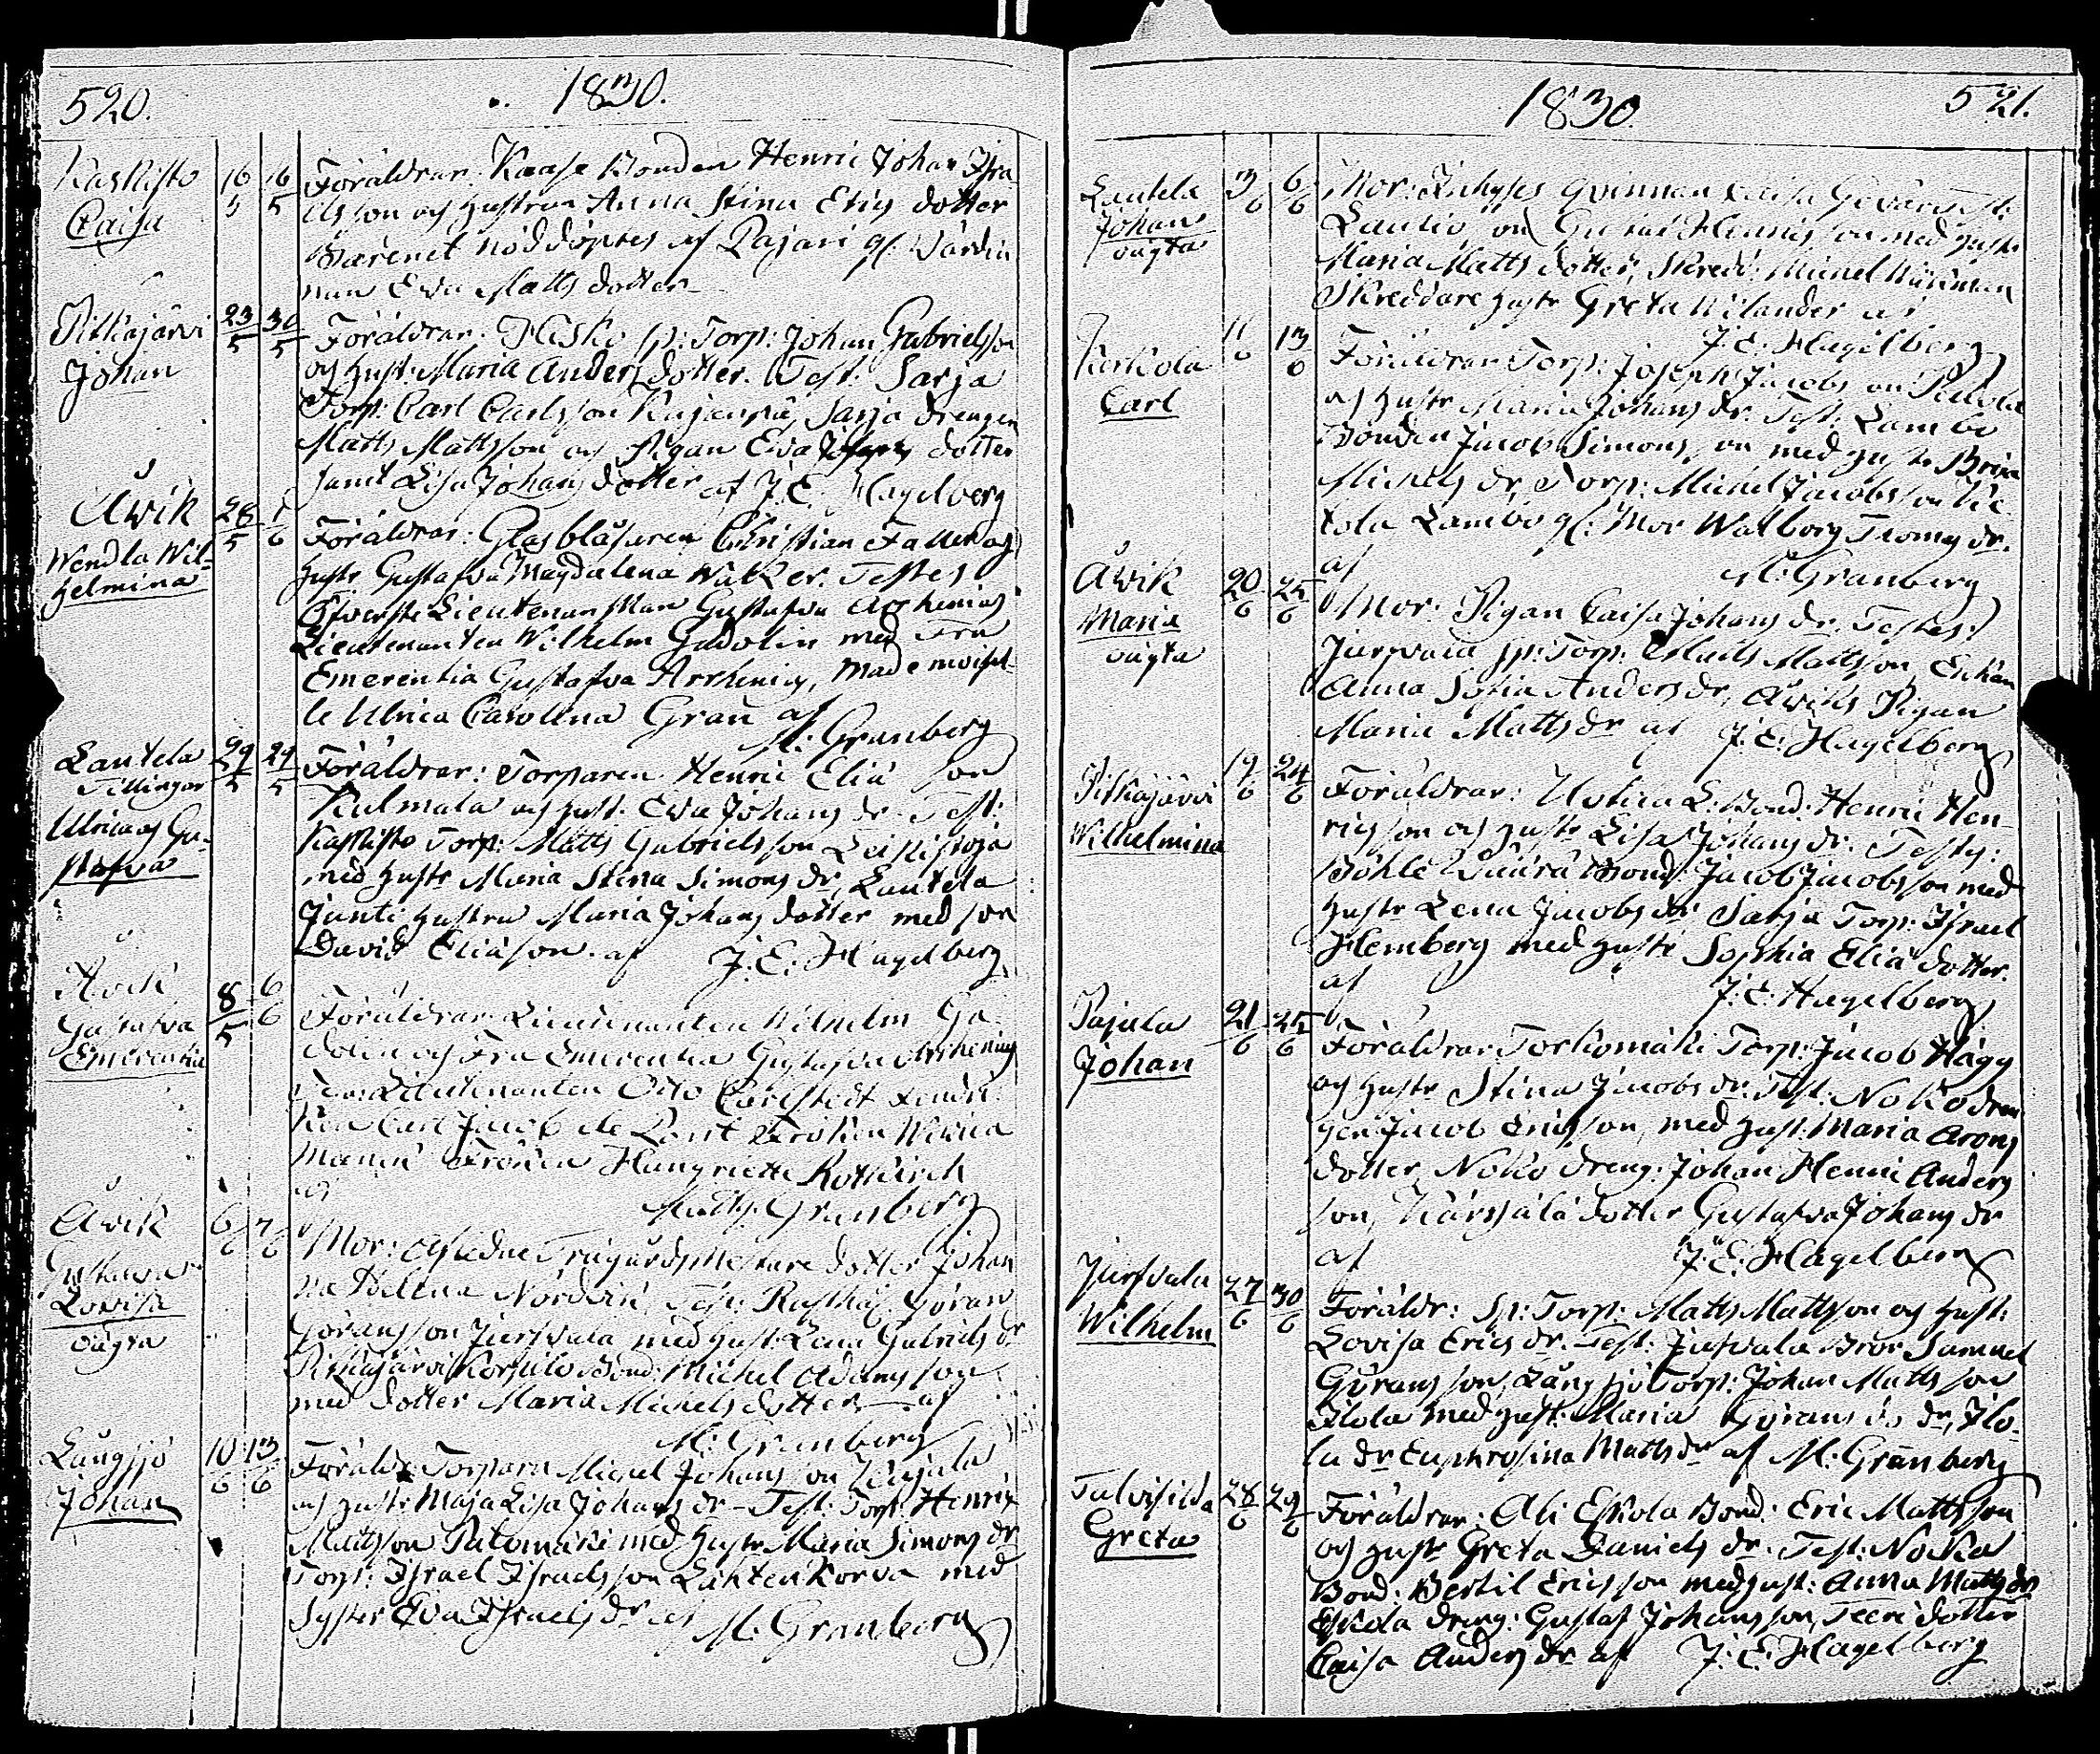 520.
1830.
Kaskisto
Caisa
16/5 16/5
Föräldrar. Kaase Bonden Henric Johan Isra
elsson och hustrun Anna Stina Erics dotter
Barenet nöddöptes af Pajari gl: Värdin
nan Eva Matts dotter
Pitkäjärvi
Johan
23/5 30/5
Föräldrar. Hisko sp: Torp: Johan Gabrielsson
och hust: Maria Anders dotter. Test: Sarja
Torp: Carl Carlsson, Sarja drengen
Matts Mattsson och Pigan Eva dotter
samt Lisa Johans dotter af J. E. Hagelberg
Åwik
Wendla Wil-
helmina
28/5 1/6
Föräldrar: Glasblåsaren Christian Faller och
hustr Gustafva Magdalena Walker. Testes
Öfverste Lieutenanskan Gustafva Arrhenius
Lieutenanten Wilhelm Gadolin med Fru
Emerentia Gustafva Arrhenius, Mademoisel-
le Ulrica Carolina Grau af
M: Granberg
Lautela
Tillingar
Ulrica og Gu-
stafva
29/5 29/5
Föräldrar: Torparen Henric Elia son
Kulmala och hust. Eva Johans dr. Test:
Kaskisto Torp: Matts Gabrielsson Leikisoja
med hustr Maria Stina Simons dr, Lautela
Junti hustru Maria Johans dotter med son
David Eliason. af J. E. Hagelberg
Åvik
Gustafva
Emerentia
8/5 6/6
Föräldrar Lieutenanten Wilhelm Ga
dolin och Fru Emerentia Gustafva Arrhenius
Lieutenanten Otto Carlstedt
Carl Jacob de Pont Fröken
Fröken Rotkirch
af
Matths: Granberg
Åwik
Gustava
Lovisa
oägta
6/6 7/6
Mor: Afledne Trägårdsmestare dotter Johan
na Helena Nordvin, Test: Rusthål: Göran
Göransson Jursvala med hust: Lena Gabriels dr
Pitkäjärvi Korsilo Bond: Michel Adamsson
med dotter Maria Michels dotter af
M: Granberg
Långsjö
Johan
10/6 13/6
Föräldr Torparn Michel Johansson
och hustr Maja Lisa Johans dr - Test: Torp: Henric
Mattsson Palomäki med hustr Maria Simons dr
Torp: Israel Israelsson Lähtenkorva med
Syster Eva Israels dr af M. Granberg
1830
521.
Lautela
Johan
oägta
3/6 6/6
Mor: Inhyses Qvinnan Caisa
med hustr
Maria Matts dotter, Skredd: Michel
Skreddare hustr Greta Nilander af
J. E. Hagelberg
Kerkola
Carl
11/6 13/6
Föräldrar Torp: Joseph Jacobsson
och hustr Maria Johans dr. Test: Lambo
Bonden Jacob Simonsson med hustr Brita
Michels dr, Torp: Michel Jacobsson
Lambo gl: Mor Walborg Thomas dr.
af M: Granberg
Åwik
Maria
oägta
20/6 25/6
Mor: Pigan Caisa Johans dr. Testes:
Jursvala sp: Torp: Matts Mattsson, Enkan
Anna Sofia Anders dr, Åwiks Pigan
Maria Matts dr af J. E. Hagelberg
Pitkäjärvi
Wilhelmina
19/6 24/6
Föräldrar: Uotila L: Bond: Henric Hen-
ricsson och hustr Lisa Johans dr. Testes:
Böhle Bond: Jacob Jacobsson med
hustr Lena Jacobs dr Sarja Torp: Israel
Hemberg med hustr Sophia Elia dotter.
af J. E. Hagelberg
Pajula
Johan
21/6 25/6
Föräldrar Torkomäki Torp: Jacob Hägg
och hustr Stina Jacobs dr. Test: Noko dren
gen Jacob Ericsson, med hust: Maria Arons
dotter, Noko dreng: Johan Henric Anders
son, Kärsälä dotter Gustafva Johans dr
af J. E. Hagelberg
Jursvala
Wilhelm
27/6 30/6
Föräldr: Sp: Torp: Matts Mattsson och hust:
Lovisa Erics dr. Test: Jursvala Bror Samuel
Göransson, Långsjö Torp: Johan Mattsson
Ilola med hust: Maria Görans dr, Ilo-
la dr Euphrosina Matts dr af M: Granberg
Talvisilda
Greta
28/6 29/6
Föräldrar: Ali Eskola Bond: Eric Mattsson
och hustr Greta Daniels dr. Test: Noko
Bond: Bertil Ericsson med hust: Anna Matts dr
Eskola dreng: Gustaf Johansson, Teeri dotter
Caisa Anders dr af J: E: Hagelberg